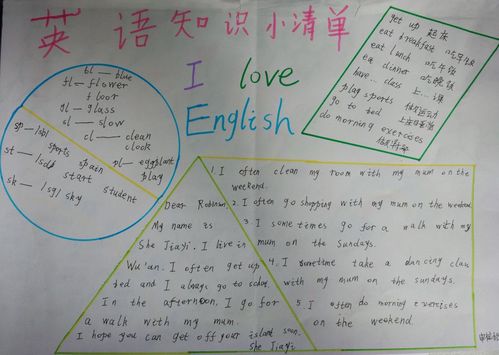 英语知识小清单
I love
English
bl — blue
fl — flower
floor
gl — glass
sl — slow
cl — clean
clock
pl — eggplant
play
sp — /sb/ sports
spain
st — /sd/ start
student
sk — /sg/ sky
get up 起床
eat breakfast 吃早饭
eat lunch 吃午饭
ea dinner 吃晚饭
have... class 上...课
play sports 体育运动
go to bed
do morning exercises
Dear Robinson,
My name is
She Jiayi. I live in
Wu'an. I often get up
and I always go to
In the afternoon, I go for
a walk with my mum.
I hope you can get off your island soon.
She Jiayi
1. I often clean my room with my mum on the
weekend.
2. I often go shopping with my mum on the weekend
3. I some times go for a walk with my
mum on the sundays.
4. I sometime take a dancing class
with my mum on the sundays.
5 I often do morning exercises
on the weekend.